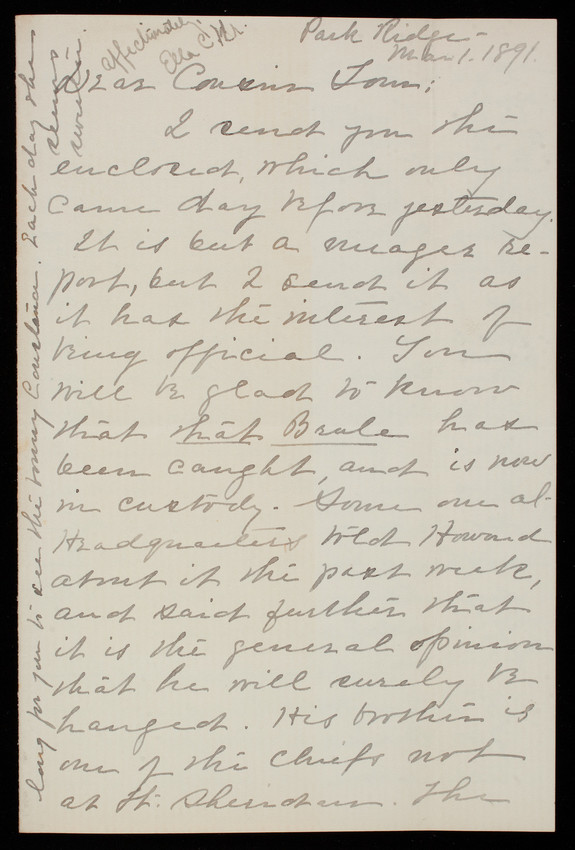 Park Ridge -
Mar 1. 1891.
Dear Cousin Tom;
I send you the
enclosed, which only
came day before yesterday.
It is but a meager re-
port, but I send it as
it has the interest of
being official. You
will be glad to know
that that Brule has
been caught, and is now
in custody. Some one at
Headquarters told Howard
about it the past week,
and said further that
it is the general opinion
that he will surely be
hanged. His brother is
one of the chiefs not
at Ft. Sheridan. The
long for you to see the bonny Constance. Each day she
seems
sweeter.
affectionately.
Ella C.